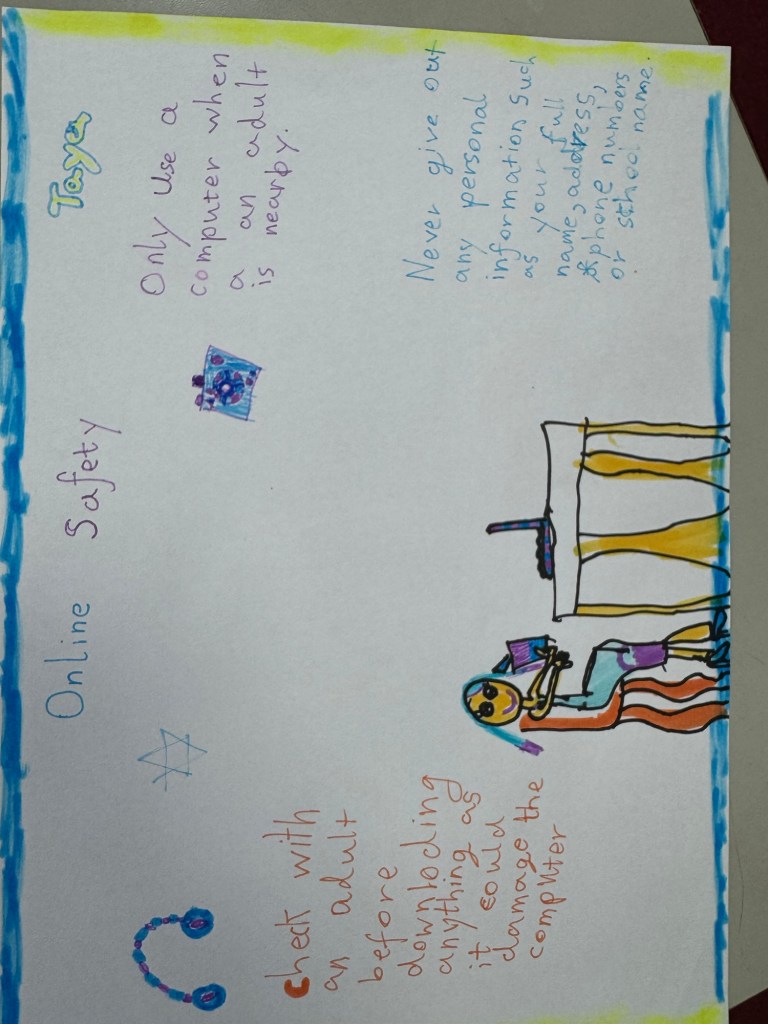 Online Safety
Taya
Check with
an adult
before
downloding
anything as
it could
damage the
computer
Only Use a
computer when
a an adult
is nearby.
Never give out
any personal
information such
as your full
name, address,
phone numbers
or school name.